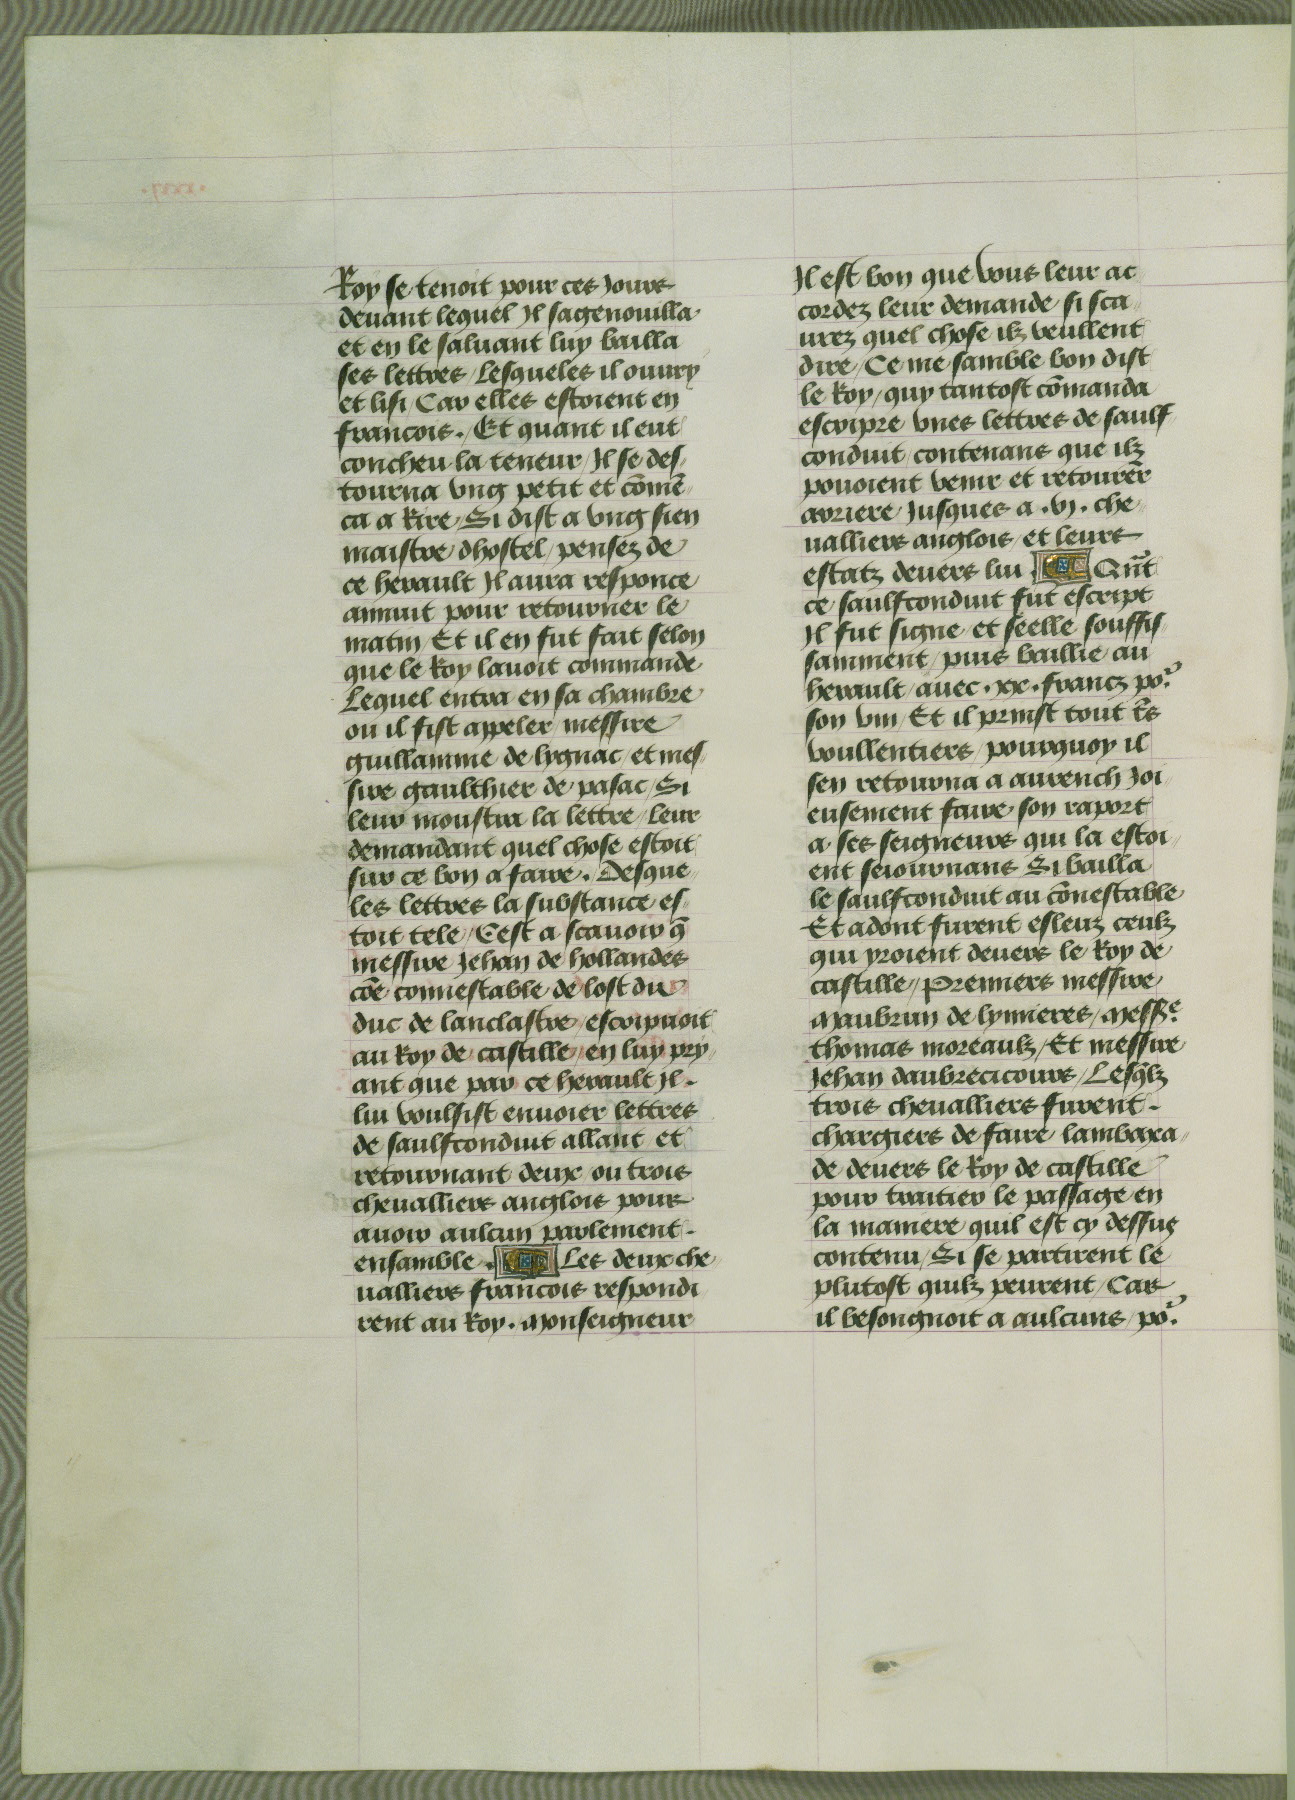 Roy se tenoit pour ces Jours
deuant lequel Jl sagenouilla
et en le saluant luy bailla
ses lettres / Lesqueles il ouury
et lisi Car elles estoient en
francois . / Et quant il eut
concheu la teneur / Jl se des/
tourna vng petit et cōmē
ca a Rire / Si dist a vng sien
maistre dhostel / pensez de
ce herault Jl aura responce
annuit pour retourner le
matin / Et il en fut fait selon
que le Roy lauoit commande
Lequel entra en sa chambre
ou il fist appeler messire
guillamme de lygnac / et mes/
sire gaulthier de pasac / Si
leur monstra la lettre / leur
demandant quel chose estoit
sur ce bon a faire . Desque
les lettres la substance es/
toit tele / Cest a scauoir q̄
messire Jehan de hollandes
cōe connestable de lost du
duc de lanclastre / escripuoit
au Roy de castille / en luy pry/
ant que par ce herault Jl .
lui voulsist enuoier lettres
de saulfconduit allant et
retournant deux ou trois
cheualliers anglois pour
auoir aulcun parlement .
ensamble . Les deux che
ualliers francois respondi
rent au Roy . Monseigneur
Jl est bon que vous leur ac
cordez leur demande si sca
urez quel chose ilz veullent
dire / Ce me samble bon dist
le Roy / quy tantost cōmanda
escripre vnes lettres de saulf
conduit contenans que ilz
pouoient venir et retourēr
arriere Jusques a . vj . che
ualliers anglois / et leurs
estatz deuers lui Qūt
ce saulfconduit fut escript
Jl fut signe / et seelle souffis/
samment / puis baillie au
herault / auec . xx . francz po͛.
son vin / Et il prinst tout t̄s
voullentiers / pourquoy il
sen retourna a aurench Joi
eusement faire son raport
a ses seigneurs qui la estoi
ent seiournans Si bailla
le saulfconduit au cōnestable
Et adont furent esleuz ceulz
qui yroient deuers le Roy de
castille // Premiers messire
Maubrun de lynieres / Messᵉ.
thomas moreaulz / Et messire
Jehan daubrecicours / Lesq̄lz
trois cheualliers furent .
chargiers de faire lambaxa
de deuers le Roy de castille
pour traitier le passage en
la maniere quil est cy dessus
contenu / Si se partirent le
plutost quilz peurent / Car
il besongnoit a aulcuns / po͛.